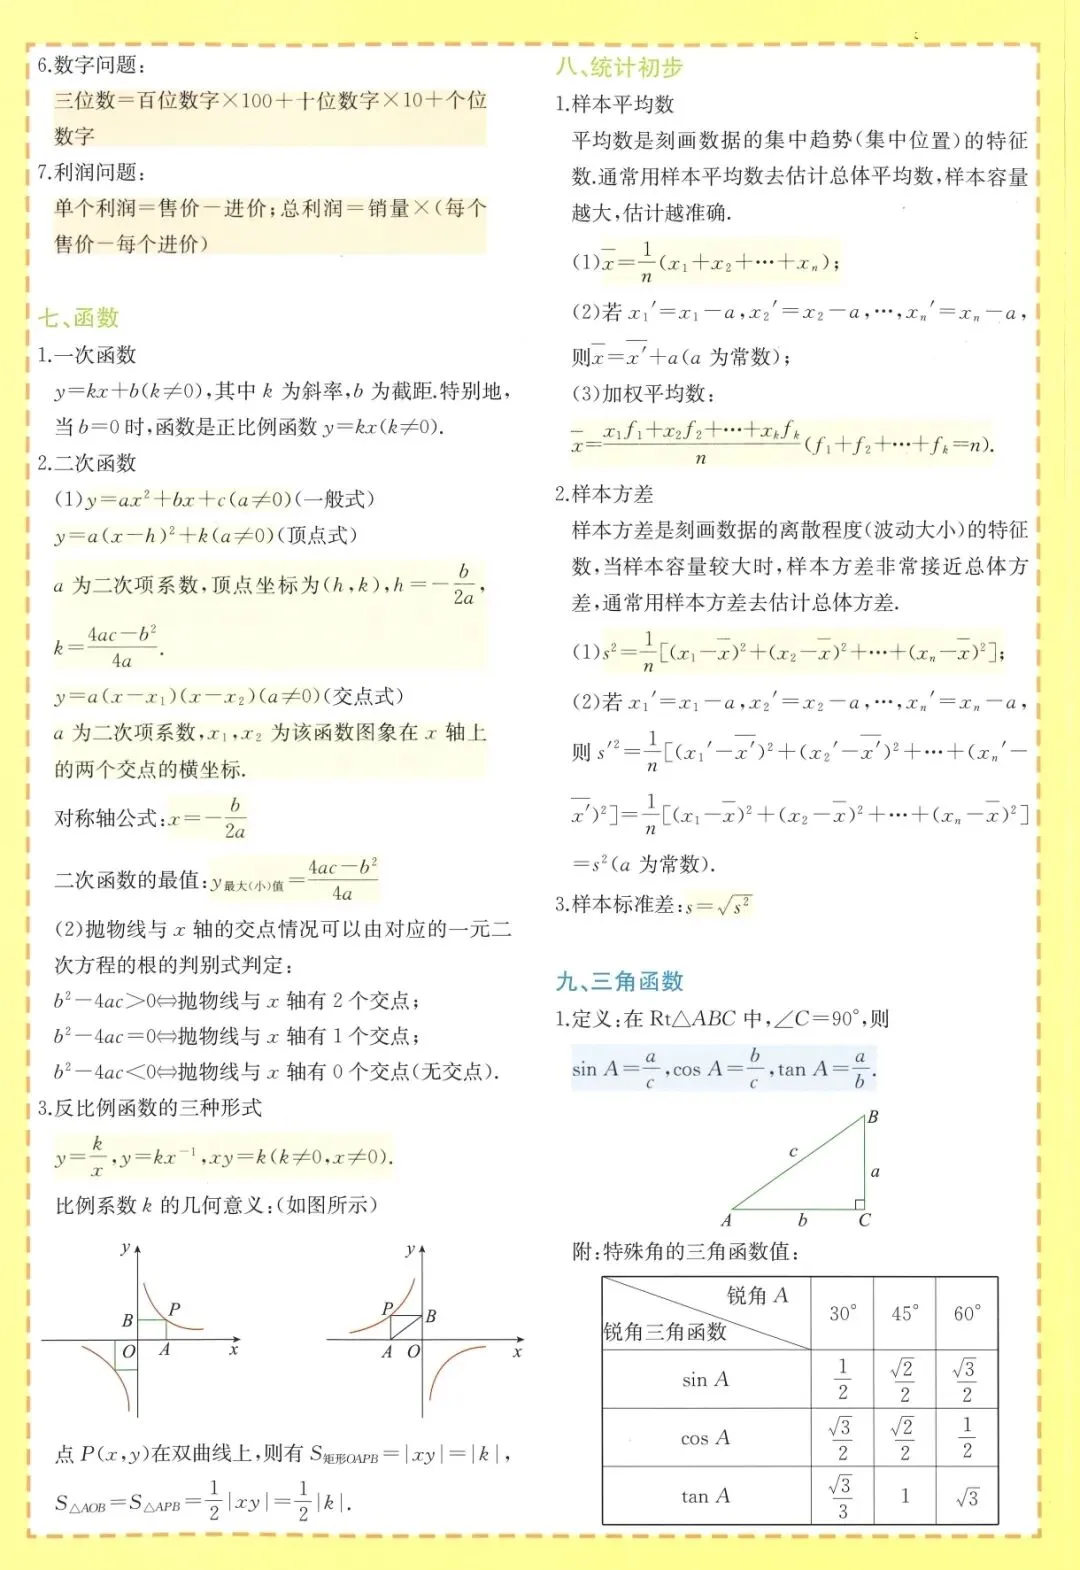 6.数字问题:
三位数=百位数字×100+十位数字×10+个位
数字
7.利润问题:
单个利润=售价-进价;总利润=销量×(每个
售价-每个进价)
七、函数
1.一次函数
y=kx+b(k≠0),其中 k 为斜率,b 为截距.特别地,
当 b=0 时,函数是正比例函数 y=kx(k≠0).
2.二次函数
(1)y=ax²+bx+c(a≠0)(一般式)
y=a(x-h)²+k(a≠0)(顶点式)
a 为二次项系数,顶点坐标为(h,k),h=-b/2a,
k=(4ac-b²)/4a.
y=a(x-x₁)(x-x₂)(a≠0)(交点式)
a 为二次项系数,x₁,x₂ 为该函数图象在 x 轴上
的两个交点的横坐标.
对称轴公式:x=-b/2a
二次函数的最值:y最大(小)值=(4ac-b²)/4a
(2)抛物线与 x 轴的交点情况可以由对应的一元二
次方程的根的判别式判定:
b²-4ac>0⇔抛物线与 x 轴有 2 个交点;
b²-4ac=0⇔抛物线与 x 轴有 1 个交点;
b²-4ac<0⇔抛物线与 x 轴有 0 个交点(无交点).
3.反比例函数的三种形式
y=k/x,y=kx⁻¹,xy=k(k≠0,x≠0).
比例系数 k 的几何意义:(如图所示)
y
B P
O A x
y
P B
A O x
点 P(x,y)在双曲线上,则有 S矩形OAPB=|xy|=|k|,
S△AOB=S△APB=1/2|xy|=1/2|k|.
八、统计初步
1.样本平均数
平均数是刻画数据的集中趋势(集中位置)的特征
数.通常用样本平均数去估计总体平均数,样本容量
越大,估计越准确.
(1)x̄=1/n(x₁+x₂+…+xₙ);
(2)若 x₁′=x₁-a,x₂′=x₂-a,…,xₙ′=xₙ-a,
则x̄=x̄′+a(a 为常数);
(3)加权平均数:
x̄=(x₁f₁+x₂f₂+…+xₖfₖ)/n(f₁+f₂+…+fₖ=n).
2.样本方差
样本方差是刻画数据的离散程度(波动大小)的特征
数,当样本容量较大时,样本方差非常接近总体方
差,通常用样本方差去估计总体方差.
(1)s²=1/n[(x₁-x̄)²+(x₂-x̄)²+…+(xₙ-x̄)²];
(2)若 x₁′=x₁-a,x₂′=x₂-a,…,xₙ′=xₙ-a,
则 s′²=1/n[(x₁′-x̄′)²+(x₂′-x̄′)²+…+(xₙ′-
x̄′)²]=1/n[(x₁-x̄)²+(x₂-x̄)²+…+(xₙ-x̄)²]
=s²(a 为常数).
3.样本标准差:s=√s²
九、三角函数
1.定义:在 Rt△ABC 中,∠C=90°,则
sin A=a/c,cos A=b/c,tan A=a/b.
B
c a
A b C
附:特殊角的三角函数值:
锐角 A 30° 45° 60°
锐角三角函数
sin A 1/2 √2/2 √3/2
cos A √3/2 √2/2 1/2
tan A √3/3 1 √3